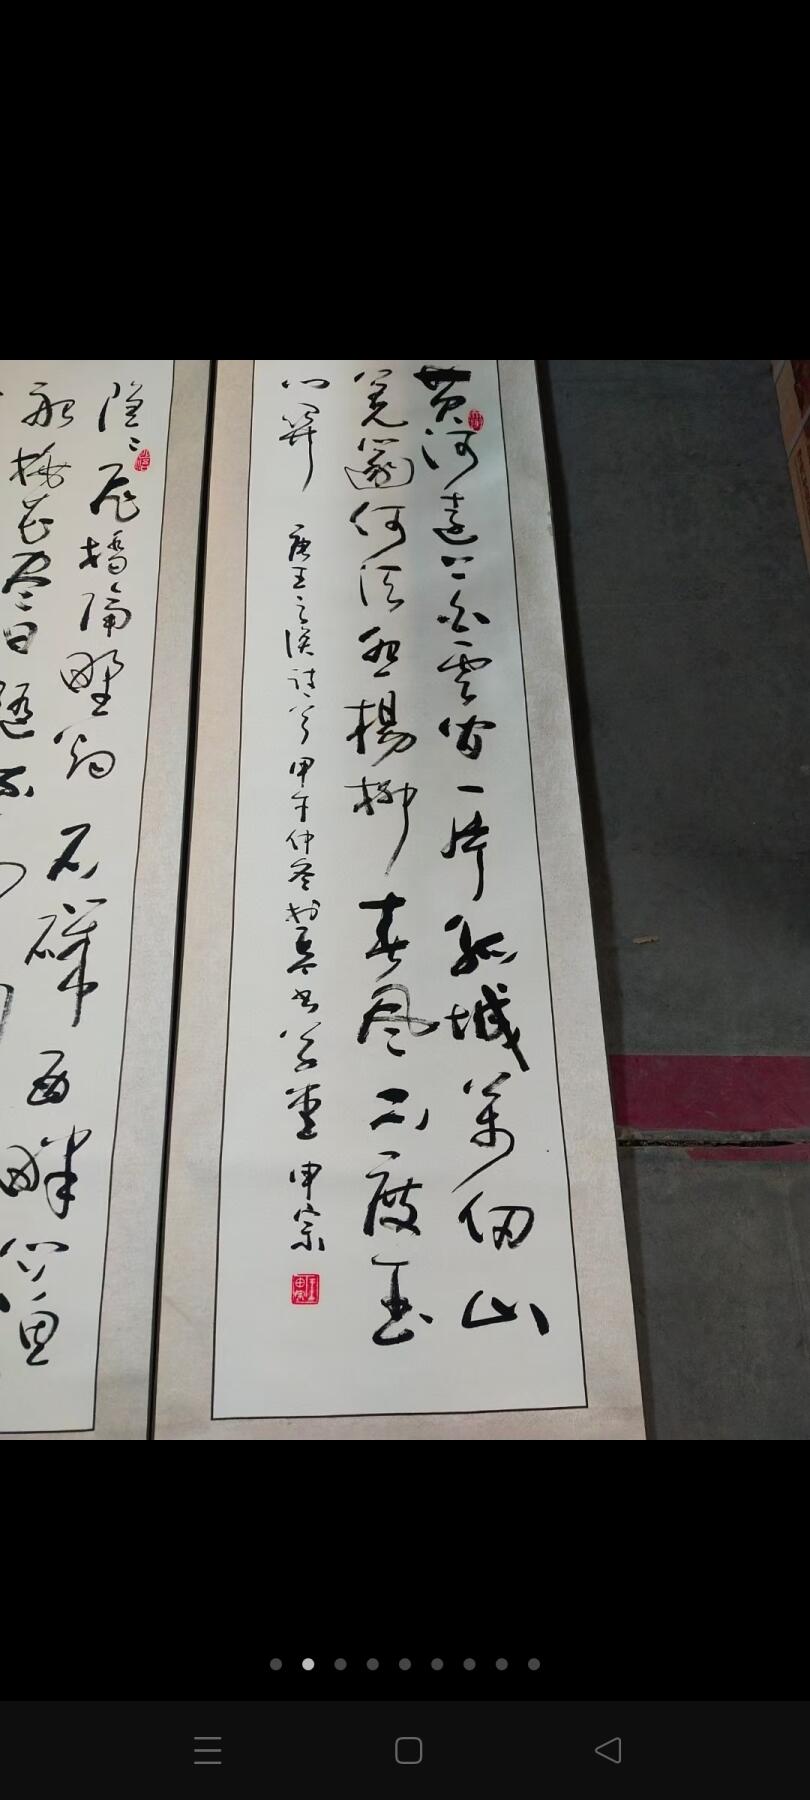 黄河远上白云间一片孤城万仞山
羌笛何须怨杨柳春风不度玉
门关
唐王之涣诗一首甲午仲冬于墨书学堂申宗
隐隐飞桥隔野烟石矶西畔问渔
船桃花尽日随流